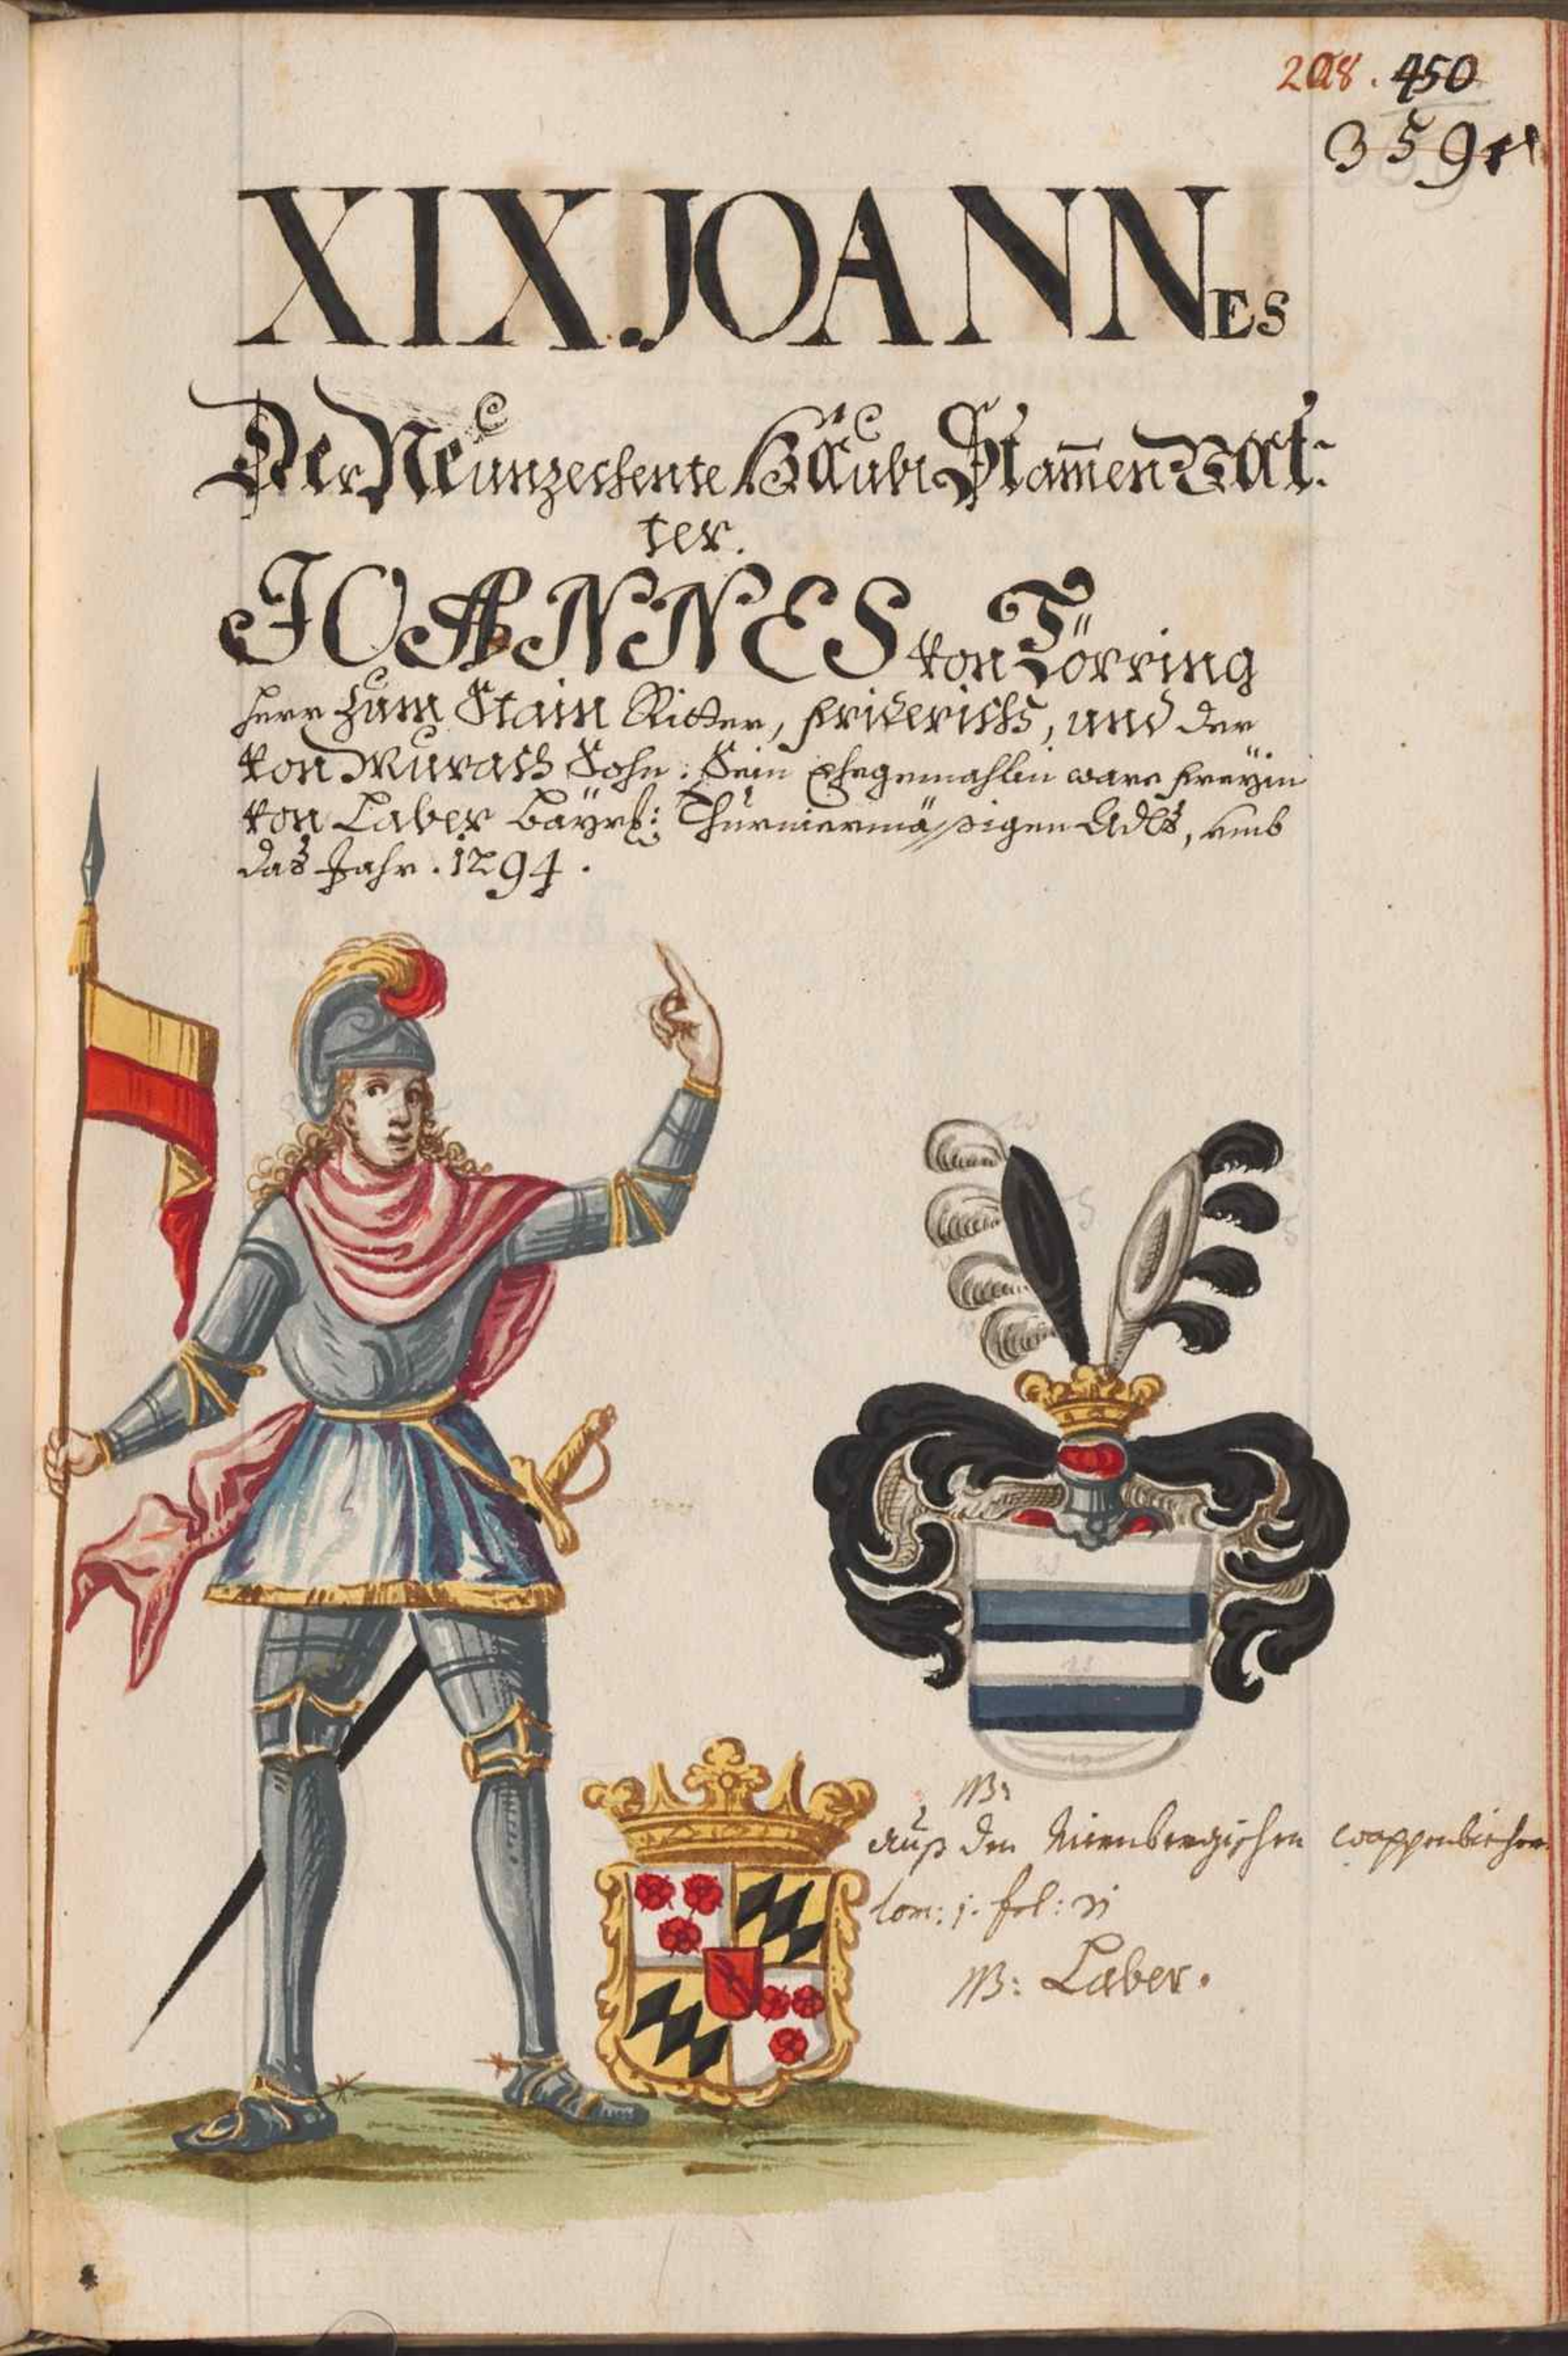 208. 450
359
XIX. JOANNES
Der Neunzechente Häubt Stam̄en Vat-
ter.
JOANNES von Törring
Herr Zum Stain Ritter, Friderichs, und der
von Murach Sohn: Sein Ehegemahlin ware Freÿin
von Laber Baÿrl: Thurniermäßigen Adls, umb
das Jahr. 1294.
NB:
Auß den Nürnbergischen wappenbiecher
tom: 1. fol:
NB: Laber.